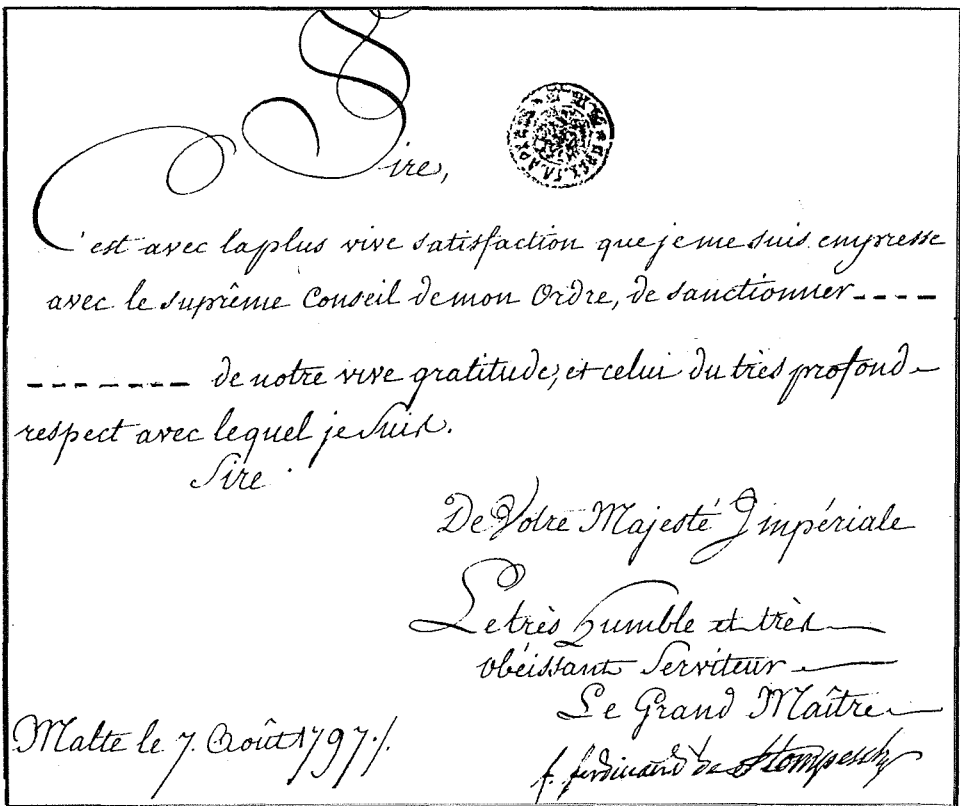 Sire,
C'est avec la plus vive satisfaction que je me suis empresse
avec le suprême Conseil de mon Ordre, de sanctionner----
-------- de notre vive gratitude, et celui du très profond
respect avec lequel je suis.
Sire
De Votre Majesté Impériale
Le très humble et très
obéissant Serviteur
Le Grand Maître
Malte le 7. Août 1797./.
f. ferdinand de Hompesch